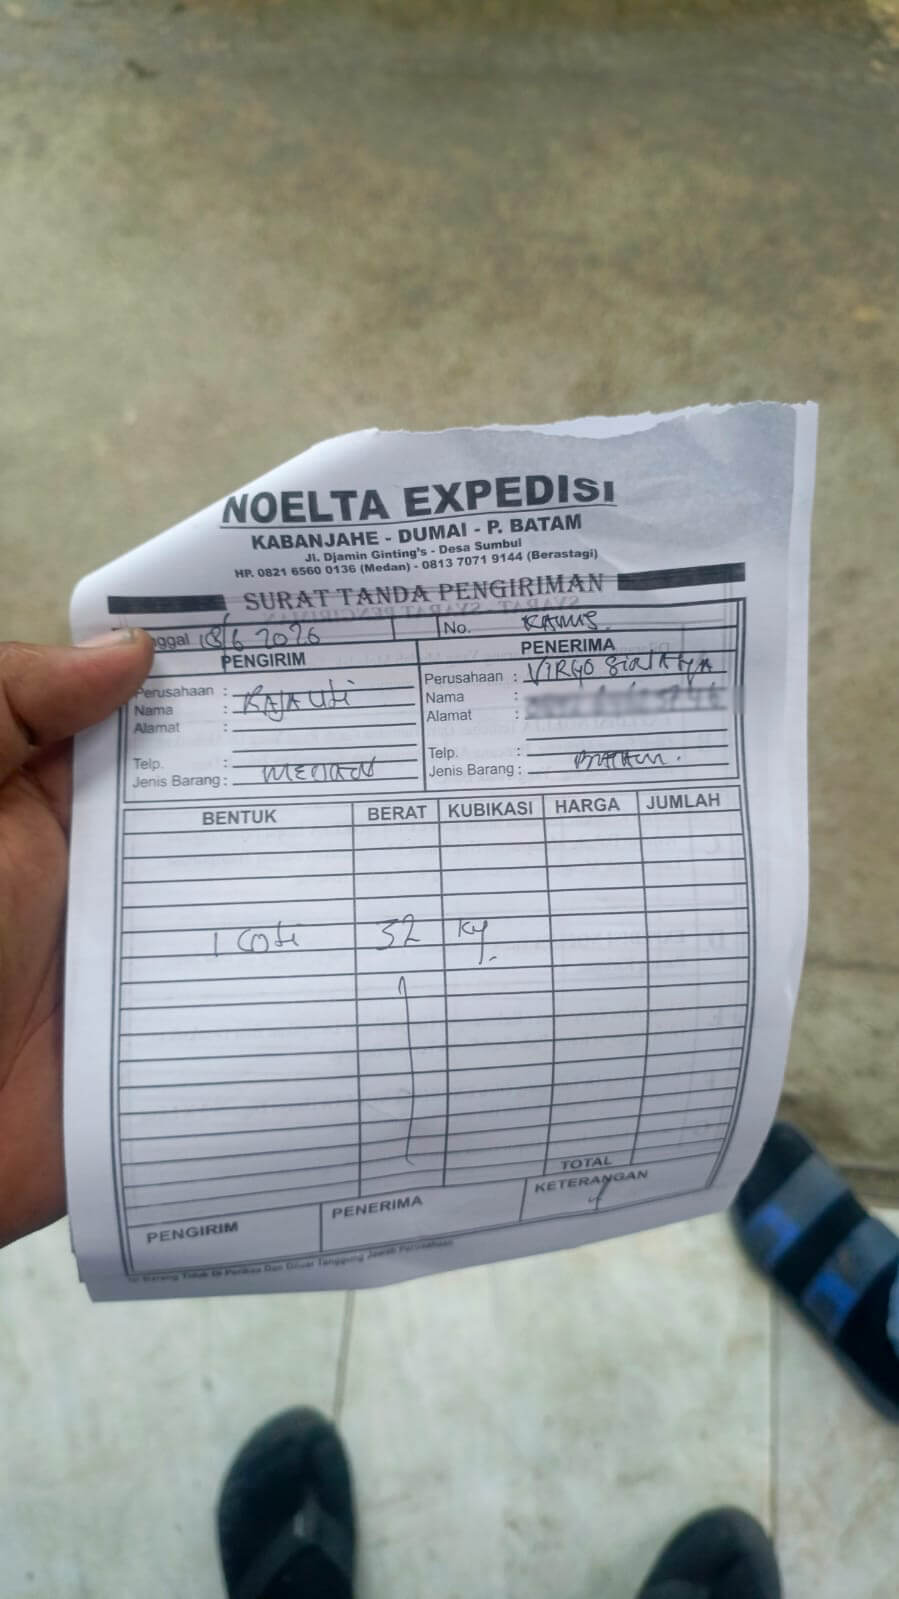 NOELTA EXPEDISI
KABANJAHE - DUMAI - P. BATAM
Jl. Djamin Ginting's - Desa Sumbul
HP. 0821 6560 0136 (Medan) - 0813 7071 9144 (Berastagi)
SURAT TANDA PENGIRIMAN
nggal 18/6 2026 No. KAMIS.
PENGIRIM PENERIMA
Perusahaan : Perusahaan : VIRGO
Nama : RAJA Nama :
Alamat : Alamat :
Telp. : Telp. :
Jenis Barang : MEDAN Jenis Barang : BATAM.
BENTUK BERAT KUBIKASI HARGA JUMLAH
1 Coli 32 Kg.
TOTAL
PENGIRIM PENERIMA KETERANGAN
Barang Tidak Di Periksa Dan Diluar Tanggung Jawab Perusahaan